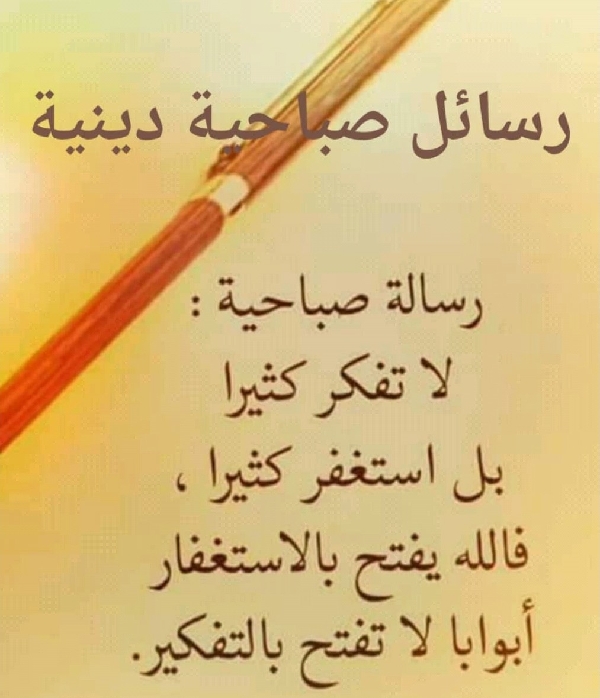 رسائل صباحية دينية
رسالة صباحية :
لا تفكر كثيرا
بل استغفر كثيرا ،
فالله يفتح بالاستغفار
أبوابا لا تفتح بالتفكير.